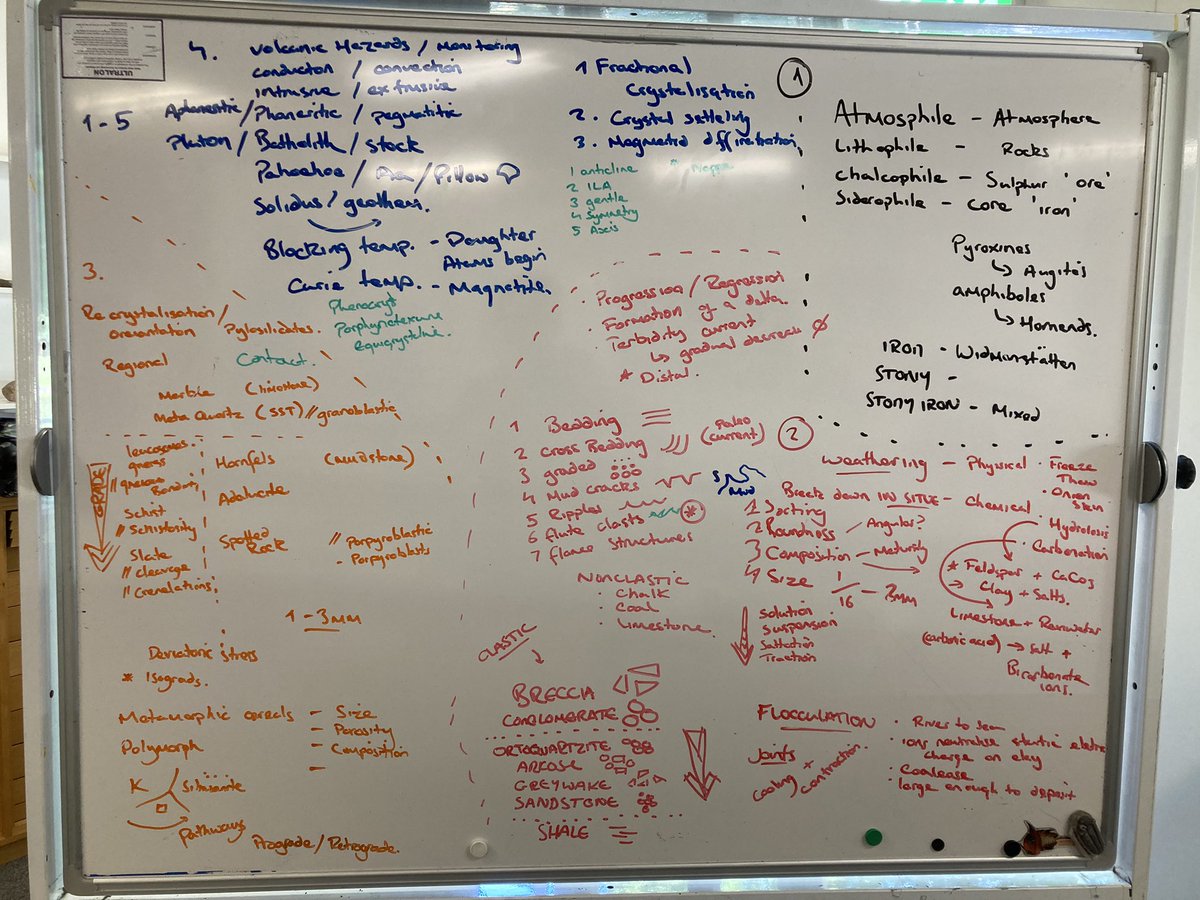 ULTRALON
4. Volcanic Hazards / Monitoring
conduction / convection
intrusive / extrusive
1-5 Aphaneritic / Phaneritic / pegmatitic
Pluton / Batholith / stock
Pahoehoe / Aa / Pillow
Solidus / geotherm.
Blocking temp. - Daughter
Atoms begin
Curie temp. - Magnetite.
1 Fractional
Crystalisation
2. Crystal settling
3. Magmatic diffrentiation
1 anticline
2 ILA
3 gentle
4 Symmetry
5 Axis
* / Nappe
1
ATMOSPHILE - ATMOSPHERE
Lithophile - Rocks
Chalcophile - Sulphur 'ore'
Siderophile - Core 'iron'
Pyroxines
↳ Augites
amphiboles
↳ Hornends.
IRON - Widmanstätten
STONY -
STONY IRON - Mixed
3.
Recrystalisation /
orientation / Pylosilidates.
Phenocryst
Porphyriotexture
equicrystaline.
Regional
Contact.
Marble (limestone)
Meta Quartz (SST) // granoblastic
GRADE
gneiss
Hornfels (mudstone)
Schist
// Schistosity
Spotted
Rock
// Porpyroblastic
- Porpyroblasts
Slate
// cleavage
// Crenelations
1 - 3MM
Deviatoric stress
* Isograds.
Metamorphic aureols - Size
- Porosity
- Composition
-
Polymorph
K Silimanite
Pathways
Prograde / Retrograde.
· Progression / Regression
· Formation of a delta.
· Terbidity current
↳ gradual decrease Ø
* Distal.
1 Bedding
2 cross Bedding (Paleo
current)
3 graded
4 Mud cracks
5 Ripples
6 flute clasts *
7 flame structures
S
Mud
NONCLASTIC
· Chalk
· Coal
· Limestone
CLASTIC
BRECCIA
CONGLOMERATE
ORTOQUARTZITE
ARKOSE
GREYWAKE
SANDSTONE
SHALE
2
Weathering - Physical · Freeze
Thaw
· Onion
Skin
Break down IN SITUE - Chemical
· Hydrolosis
· Carbonation
1 Sorting
2 Roundness / Angular?
3 Composition - Maturity
4 Size 1/16 - 2MM
* Feldspar + CaCO3
→ Clay + Salts.
Limestone + Rainwater
(carbonic acid) → Salt +
Bicarbonate
ions.
Solution
Suspension
Saltation
Traction
FLOCCULATION · River to sea
· ions neutralise static electro
charge on clay
· Coalease
· large enough to deposit
Joints
Cooling + contraction